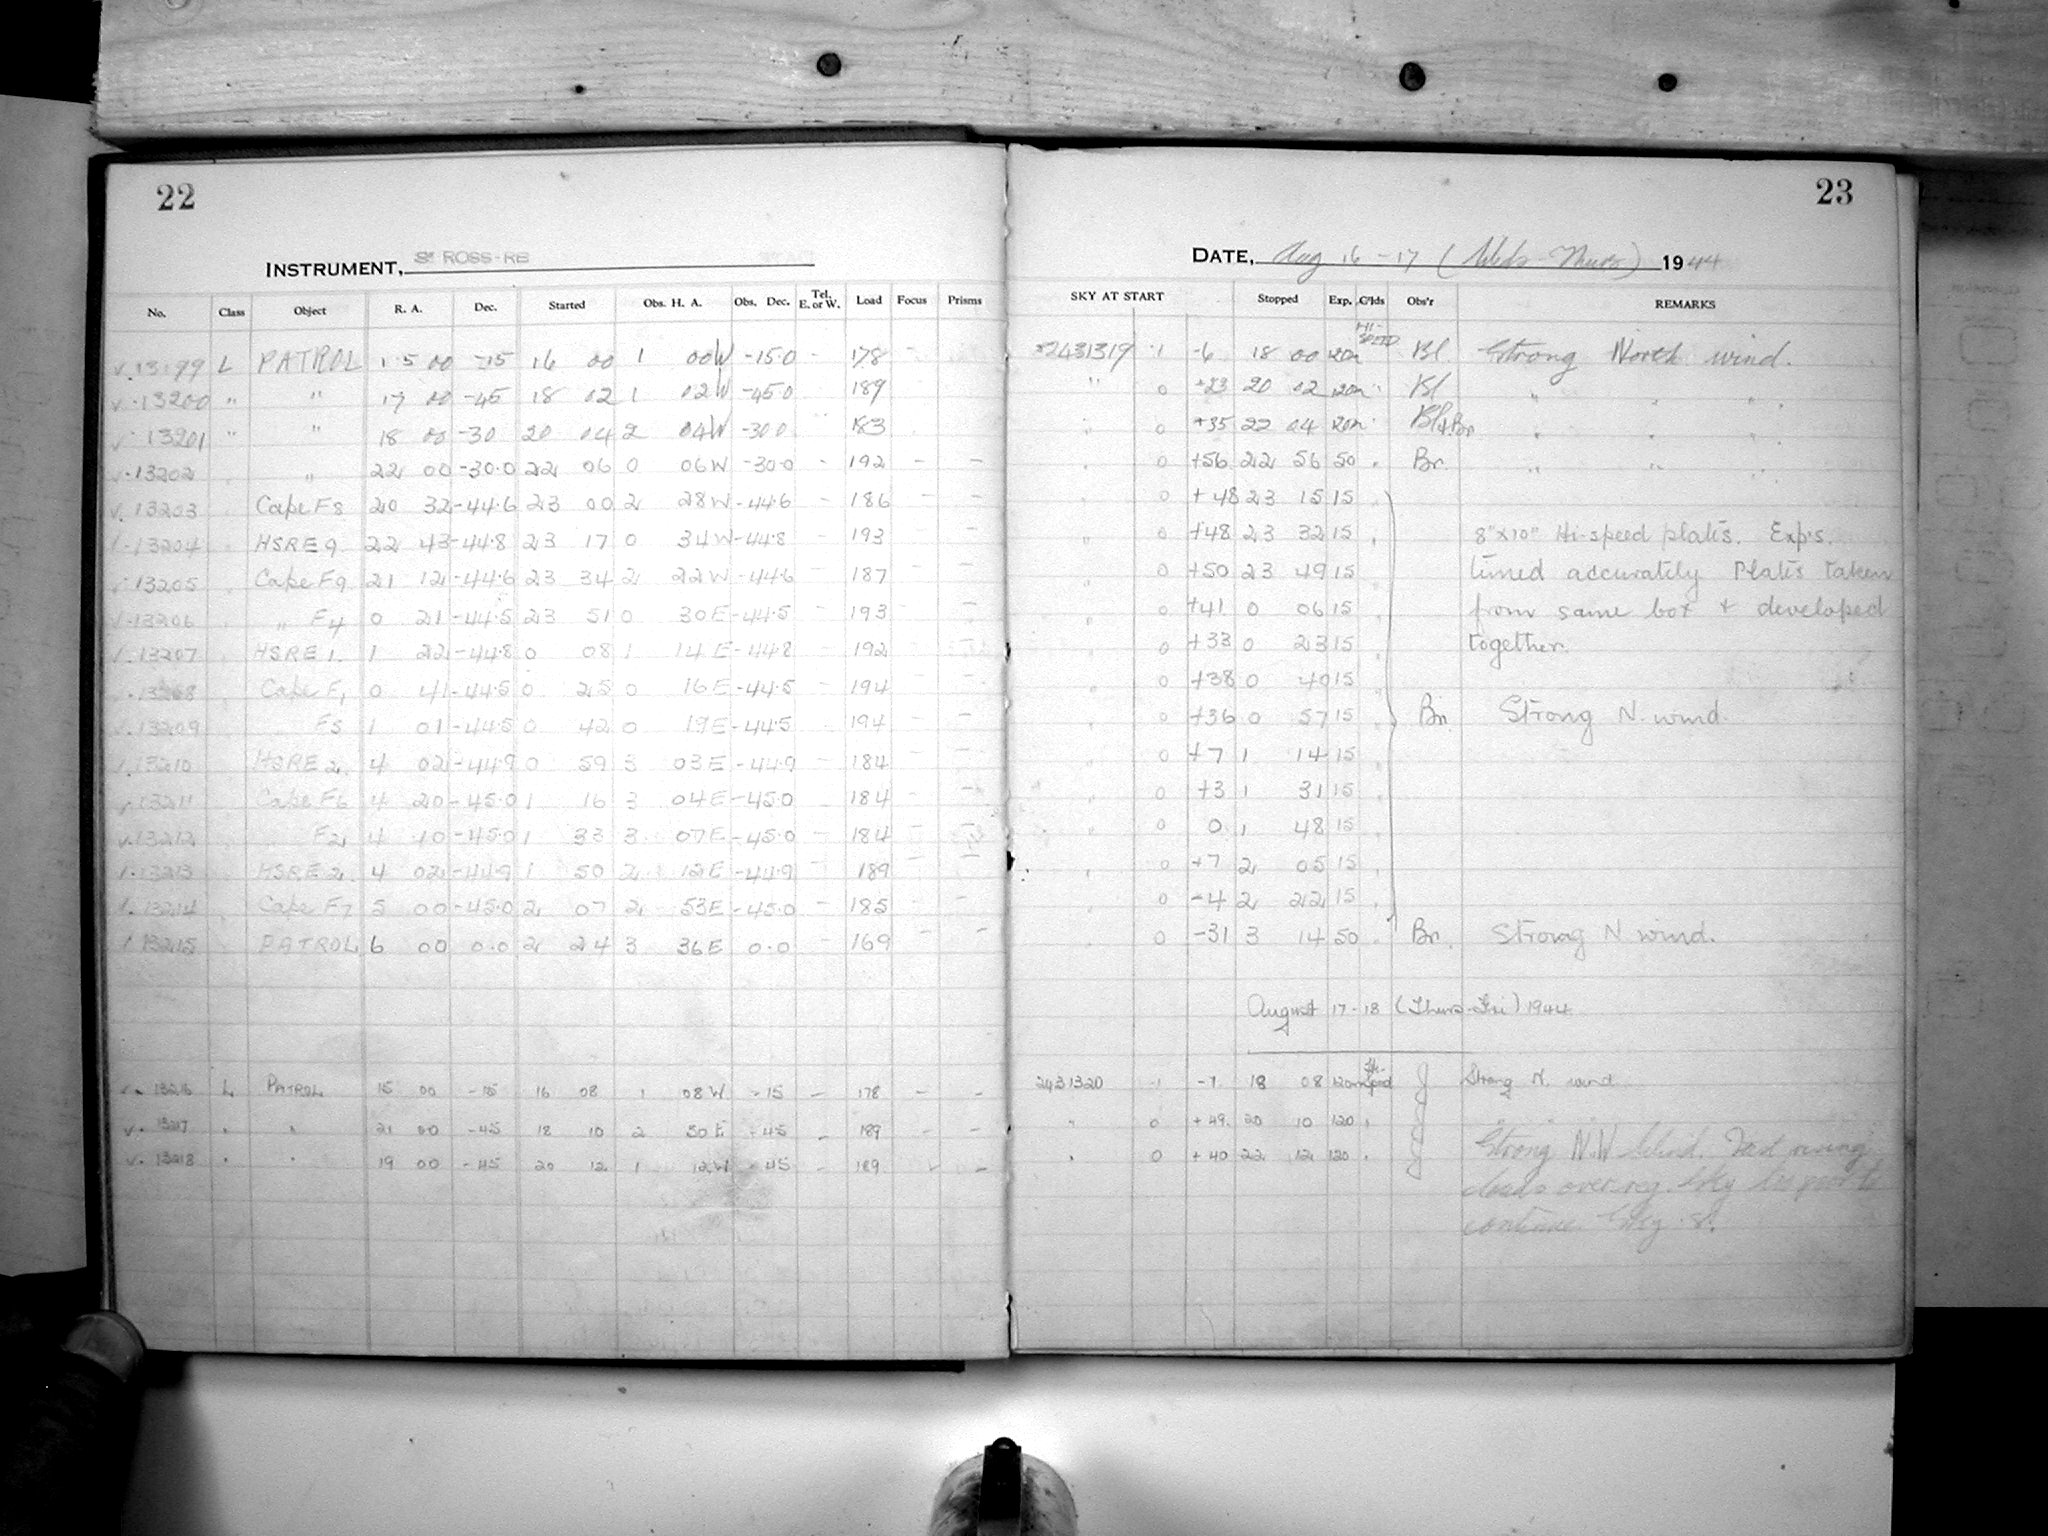 22
INSTRUMENT, ROSS-RB
No. Class Object R. A. Dec. Started Obs. H. A. Obs. Dec. Tel. E. or W. Load Focus Prisms
13199 L PATROL 15 00 -15 16 00 1 00W -15.0 - 178
13200 " " 17 00 -45 18 02 1 02W -45.0 189
13201 " " 18 00 -30 20 04 2 04W -30.0 183
13202 " 22 00 -30.0 22 06 0 06W -30.0 - 192 - -
13203 Cape F8 20 32 -44.6 23 00 2 28W -44.6 - 186 - -
13204 HSRE 9 22 43 -44.8 23 17 0 34W -44.8 - 193 - -
13205 Cape F9 21 12 -44.6 23 34 2 22W -44.6 - 187 - -
13206 " F4 0 21 -44.5 23 51 0 30E -44.5 - 193 - -
13207 HSRE 1 1 22 -44.8 0 08 1 14E -44.8 - 192 - -
13208 Cape F1 0 41 -44.5 0 25 0 16E -44.5 - 194 - -
13209 F5 1 01 -44.5 0 42 0 19E -44.5 - 194 - -
13210 HSRE 2 4 02 -44.9 0 59 3 03E -44.9 - 184 - -
13211 Cape F6 4 20 -45.0 1 16 3 04E -45.0 - 184 - -
13212 F2 4 10 -45.0 1 33 3 07E -45.0 - 184 - -
13213 HSRE 2 4 02 -44.9 1 50 2 12E -44.9 - 189 - -
13214 Cape F7 5 00 -45.0 2 07 2 53E -45.0 - 185 - -
13215 PATROL 6 00 0.0 2 24 3 36E 0.0 - 169 - -
13216 L PATROL 15 00 -15 16 08 1 08W -15 - 178 - -
13217 " " 21 00 -45 18 10 2 50E -45 - 189 - -
13218 " " 19 00 -45 20 12 1 12W -45 - 189 - -
23
DATE, Aug 16-17 (Weds-Thurs) 1944
SKY AT START Stopped Exp. C'lds Obs'r REMARKS
HI-SPEED
2431319 -1 -6 18 00 120m Bl. Strong North wind.
" 0 +23 20 02 120m " Bl " " "
" 0 +35 22 04 120m " Bl+Bn " " "
" 0 +56 22 56 50 " Bn. " " "
" 0 +48 23 15 15
" 0 +48 23 32 15 " 8"x10" Hi-speed plates. Exp's.
" 0 +50 23 49 15 timed accurately Plates taken
" 0 +41 0 06 15 from same box + developed
" 0 +33 0 23 15 together.
" 0 +38 0 40 15
" 0 +36 0 57 15 Bn. Strong N. wind.
" 0 +7 1 14 15
" 0 +3 1 31 15
" 0 0 1 48 15
" 0 +7 2 05 15
" 0 -4 2 22 15
" 0 -31 3 14 50 " Bn. Strong N wind.
August 17-18 (Thurs-Fri) 1944
2431320 -1 -7 18 08 120m J Strong N. wind
" 0 +49 20 10 120 " J
" 0 +40 22 12 120 " J Strong N.W Wind. Fast moving
clouds over reg. Sky too poor to
continue